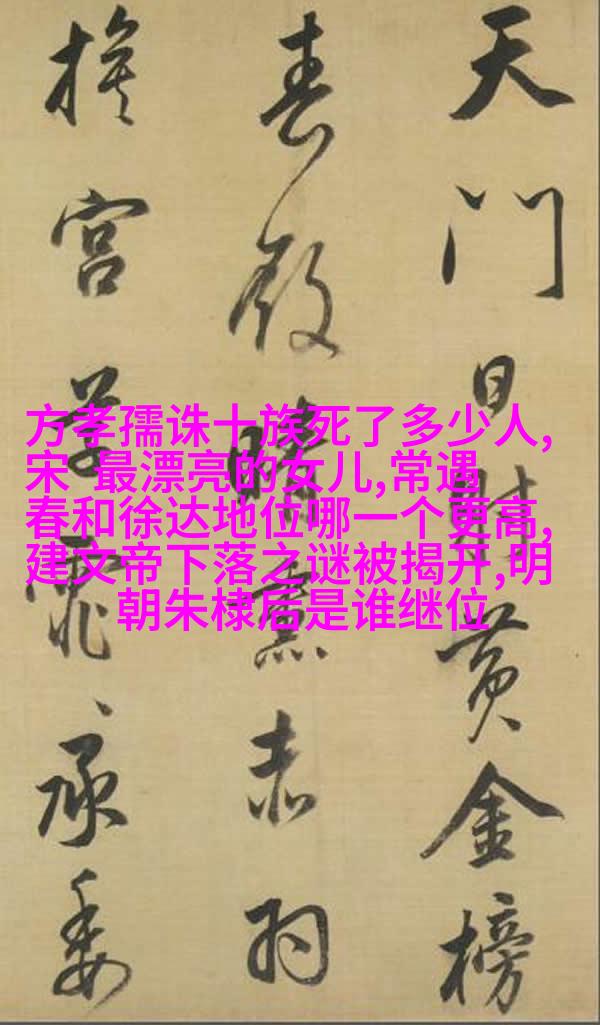 天門日射黃金榜
春殿晴熏赤羽
旗宮草霏〻承委
方孝孺诛十族死了多少人,
宋 最漂亮的女儿,常遇
春和徐达地位哪一个更高,
建文帝下落之谜被揭开,明
朝朱棣后是谁继位